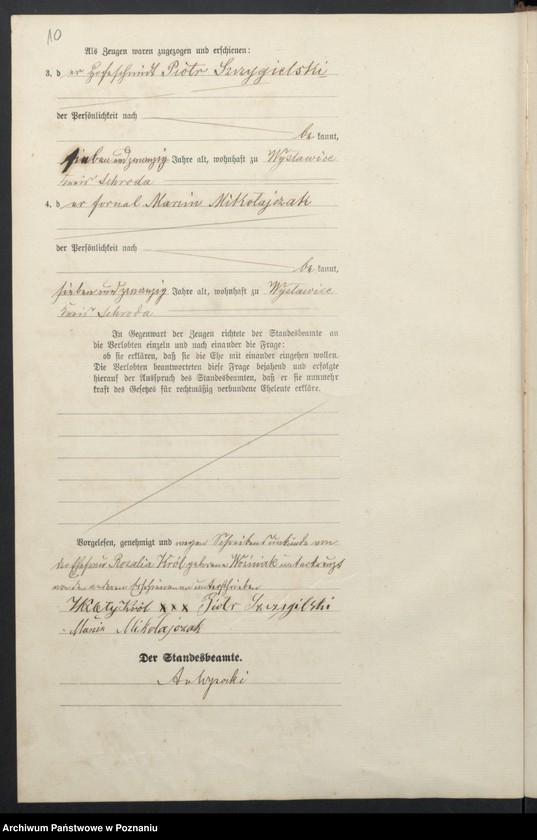 10
Als Zeugen waren zugezogen und erschienen:
3. d er Hofschmidt Piotr Szczygielski
der Persönlichkeit nach
be kannt,
sieben und zwanzig Jahre alt, wohnhaft zu Wysławice
Kreis Schroda
4. d er fornal Marcin Mikołajczak
der Persönlichkeit nach
be kannt,
sieben und zwanzig Jahre alt, wohnhaft zu Wysławice
Kreis Schroda
In Gegenwart der Zeugen richtete der Standesbeamte an
die Verlobten einzeln und nach einander die Frage:
ob sie erklären, daß sie die Ehe mit einander eingehen wollen.
Die Verlobten beantworteten diese Frage bejahend und erfolgte
hierauf der Ausspruch des Standesbeamten, daß er sie nunmehr
kraft des Gesetzes für rechtmäßig verbundene Eheleute erkläre.
Vorgelesen, genehmigt und wegen Schreibensunkunde von
der Ehefrau Rozalia Król geborene Woźniak unterkreuzt
von den anderen Erschienenen unterschrieben
Król xxx Piotr Szczygielski
Marcin Mikołajczak
Der Standesbeamte.
Archiwum Państwowe w Poznaniu